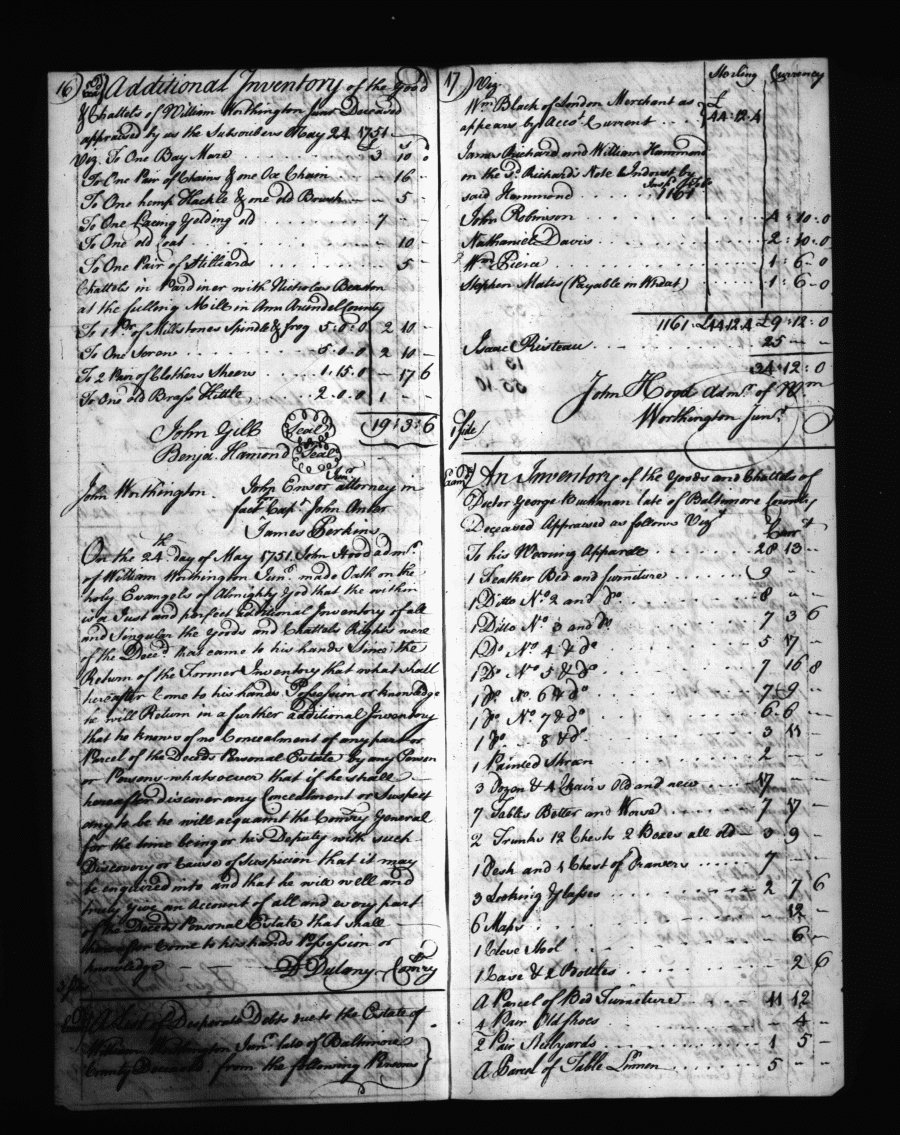 16) Additional Inventory of the Good
& Chattels of William Worthington Junr. Deceased
appraised by us the Subscribers May 24 1751
Viz. To One Bay Mare 3 10 0
To One Pair of Chains & one Ox Chain - 16 -
To One hemp Hackle & one old Brush - 5 -
To One Pacing Gelding old 7 - -
To One old Coat - 10 -
To One Pair of Stilliards - 5 -
Chattels in Pardiner with Nicholas
at the fulling Mill in Ann Arundel County
To 1 Pr. of Millstones Spindle & frog 5. 0. 0 2 10 -
To One Screw 5. 0. 0 2 10 -
To 2 Pair of Clothers Sheers 1. 15. 0 - 17 6
To One old Brass Kettle 2. 0. 0 1 -
19: 3: 6
John Gill Seal
Benja. Hamond Seal
John Worthington John Ensor Junr. attorney in
fact Capt. John
James Perkins
On the 24th day of May 1751. John Hood admr.
of William Worthington Junr. made Oath on the
holy Evangels of Almighty God that the within
is a Just and perfect additional Inventory of all
and Singular the Goods and Chattels Rights were
of the Deced. that came to his hands Since the
Return of the Former Inventory that what shall
hereafter Come to his hands Possession or knowledge
he will Return in a further additional Inventory
that he knows of no Concealment of any part or
Parcel of the Deceds Personal Estate by any Person
or Persons whatsoever that if he shall
hereafter discover any Concealment or Suspect
any to be he will acquaint the Comry General
for the time being or his Deputy with such
Discovery or Cause of Suspicion that it may
be enquired into and that he will well and
truly give an Account of all and every part
of the Deceds Personal Estate that shall
hereafter Come to his hands Possession or
knowledge D Dulany Comry
A List of Desperate Debts due to the Estate of
William Worthington Junr. late of Baltimore
County Deceased from the following Persons
17) Viz. Sterling Currency
Wm. Black of London Merchant as £
appears by Accot. Current 44: 12. 4
James Richard and William Hammond
on the sd. Richards Note Indorst by
said Hammond 1161
John Robinson 4: 10: 0
Nathaniel Davis 2: 10. 0
Wm. Pierce 1: 6 - 0
Stephen Mates (Payable in Wheat) 1: 6 - 0
1161 £44 12 4 £9: 12: 0
Isaac Risteau 25 - -
34: 12: 0
John Hood Admr. of Wm
Worthington Junr.
1 side
Examd
An Inventory of the Goods and Chattels of
Doctor George Buchanan late of Baltimore County
Deceased Appraised as follows Viz
Curt
To his Wearing Apparel 28 13 -
1 Feather Bed and furniture 9 - -
1 Ditto No. 2 and do. 8 - -
1 Ditto No. 3 and do. 7 3 6
1 Do. No. 4 & do 5 17 -
1 Do No. 5 & do 7 16 8
1 Do. No. 6 & do 7 9 -
1 Do. No. 7 & do 6. 6 -
1 Do. 8 & do 3 11 -
1 Painted 2 - -
3 Dozen & 4 Chairs Old and new 17 - -
7 Tables Better and Worse 7 17 -
2 Trunks 12 Chests 2 Boxes all old 3 9 -
1 Desk and 1 Chest of Drawers 7 - -
3 Looking Glasses 2 7 6
6 Maps - 12 -
1 Close Stool 6 -
1 Case & 2 Bottles 2 6
A Parcel of Bed Furniture 11 12
4 Pair Old Shoes - 4 -
2 Pair Stilyards 1 5 -
A Parcel of Table Linnen 5 - -